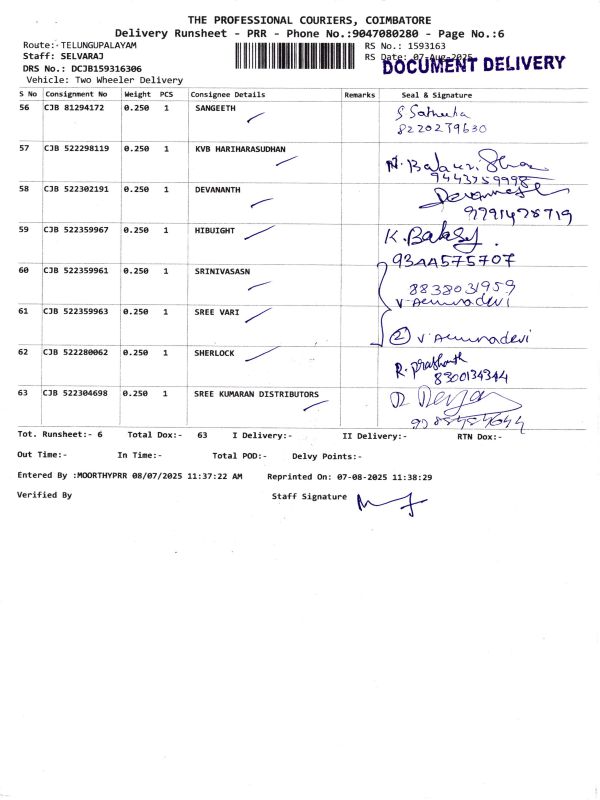 THE PROFESSIONAL COURIERS, COIMBATORE
Delivery Runsheet - PRR - Phone No.:9047080280 - Page No.:6
Route:- TELUNGUPALAYAM
RS No.: 1593163
Staff: SELVARAJ
RS Date: 07-Aug-2025
DOCUMENT DELIVERY
DRS No.: DCJB159316306
Vehicle: Two Wheeler Delivery
S No Consignment No Weight PCS Consignee Details Remarks Seal & Signature
56 CJB 81294172 0.250 1 SANGEETH
8220279630
57 CJB 522298119 0.250 1 KVB HARIHARASUDHAN
9443759998
58 CJB 522302191 0.250 1 DEVANANTH
9791478719
59 CJB 522359967 0.250 1 HIBUIGHT K.
9344575707
60 CJB 522359961 0.250 1 SRINIVASASN
8838031959
61 CJB 522359963 0.250 1 SREE VARI
2
62 CJB 522280062 0.250 1 SHERLOCK R. Prashanth
8300134344
63 CJB 522304698 0.250 1 SREE KUMARAN DISTRIBUTORS
Tot. Runsheet:- 6 Total Dox:- 63 I Delivery:- II Delivery:- RTN Dox:-
Out Time:- In Time:- Total POD:- Delvy Points:-
Entered By :MOORTHYPRR 08/07/2025 11:37:22 AM Reprinted On: 07-08-2025 11:38:29
Verified By Staff Signature